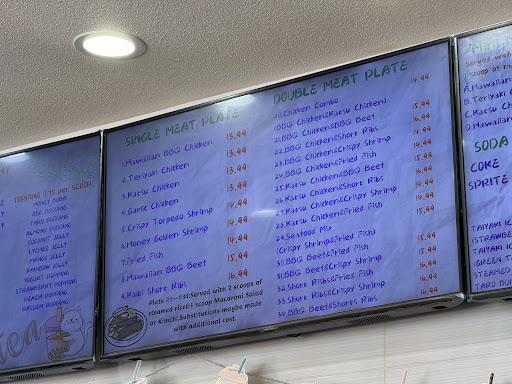 TOPPING 0.70 per SCOOP
HONEY BOBA
EGG PUDDING
TARO PUDDING
ALMOND PUDDING
COCONUT JELLY
LYCHEE JELLY
MANGO JELLY
RAINBOW JELLY
YOGURT POPPING
STRAWBERRY POPPING
PEACH POPPING
PASSION POPPING
tea
SINGLE MEAT PLATE
1.Hawaiian BBQ Chicken 13.99
2.Teriyaki Chicken 13.99
3.Katsu Chicken 13.99
4.Garlic Chicken 13.99
5.Crispy Torpedo Shrimp 14.99
6.Honey Golden Shrimp 14.99
7.Fried Fish 14.99
8.Hawaiian BBQ Beef 15.99
9.Kalbi Short Ribs 16.99
Plate #1-#34:Served with 2 scoops of
steamed rice&1 scoop Macaroni Salad
or Kimchi Substitutions maybe made
with additional cost.
DOUBLE MEAT PLATE
20.Chicken Combo 14.99
(BBQ Chicken&Katsu Chicken)
21.BBQ Chicken&BBQ Beef 15.99
22.BBQ Chicken&Short Ribs 16.99
23.BBQ Chicken&Crispy Shrimp 14.99
24.BBQ Chicken&Fried Fish 15.99
25.Katsu Chicken&BBQ Beef 15.99
26.Katsu Chicken&Short Ribs 16.99
27.Katsu Chicken&Crispy Shrimp
28.Katsu Chicken&Fried Fish
29.Seafood Mix
(Crispy Shrimp&Fried Fish)
30.BBQ Beef&Fried Fish
31.BBQ Beef&Crispy Shrimp
32.Short Ribs&Fried Fish
33.Short Ribs&Crispy Shrimp
34.BBQ Beef&Short Ribs 16.99
A.Hawaiian
B.Teriyaki
C.Katsu
D.Hawaiian
SODA
COKE
SPRITE
TAIYAKI
(STRAWBE
TAIYAKI
(GREEN
STEAMED
TARO